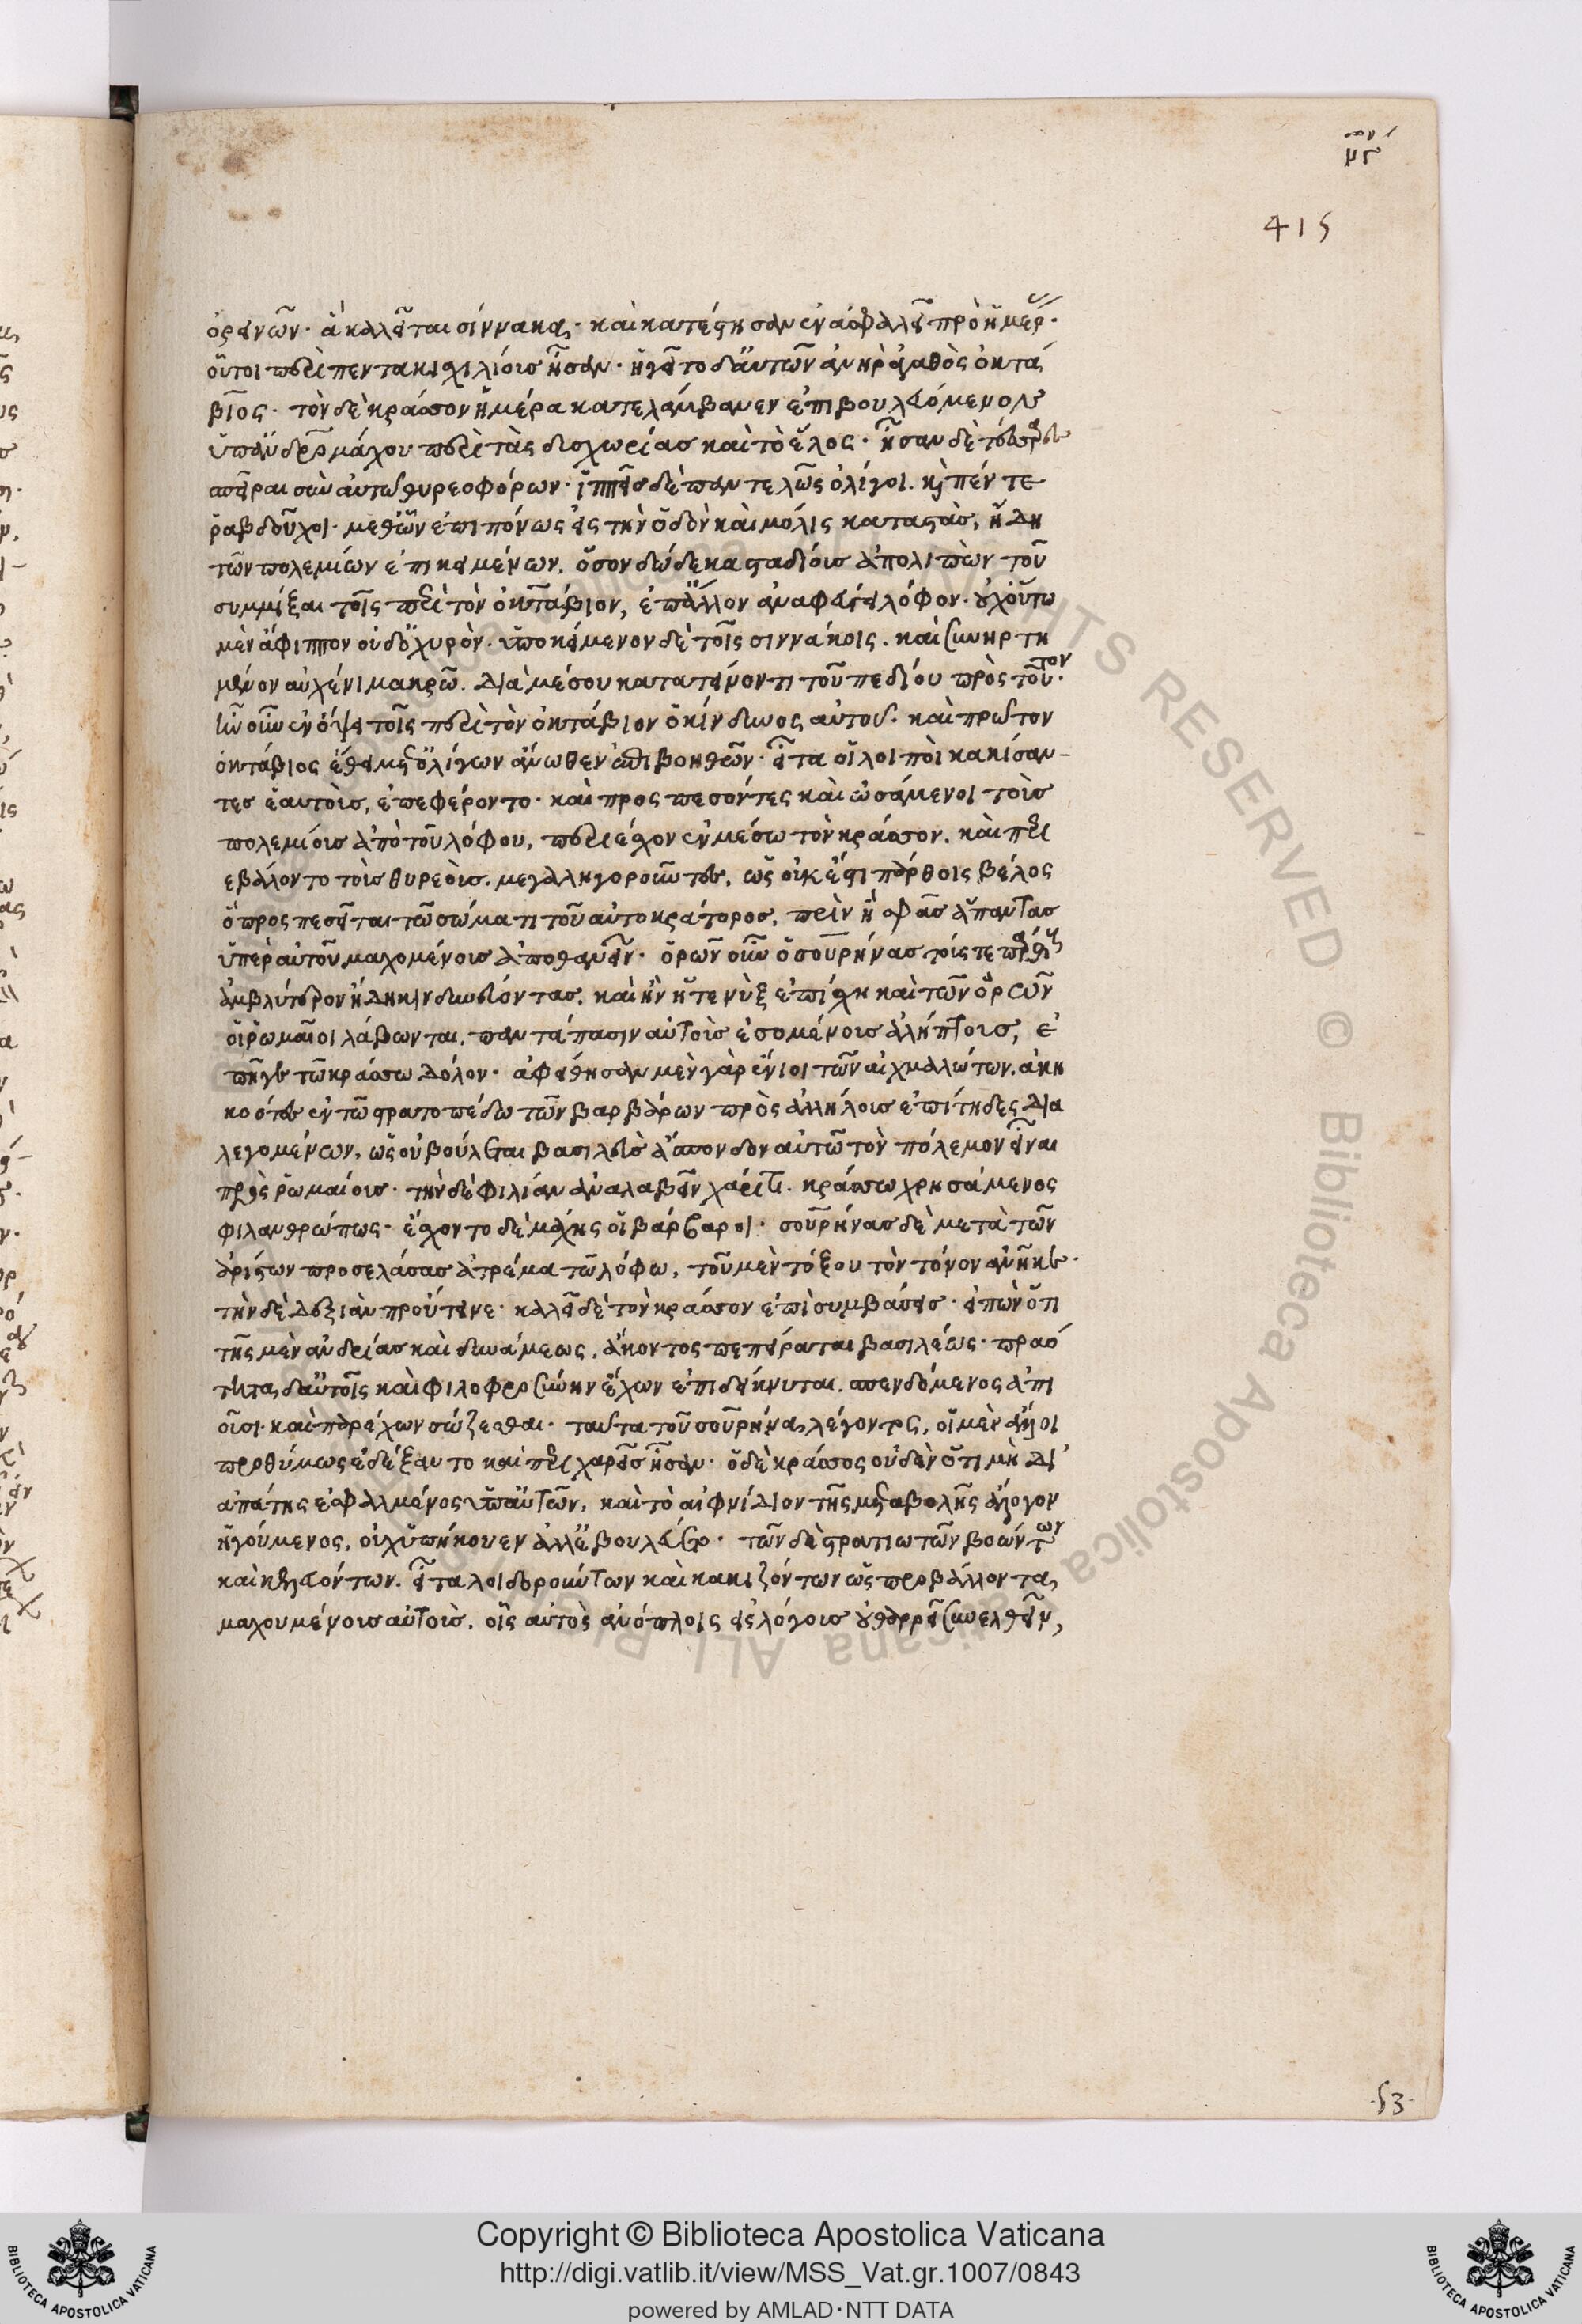 415
ὀρεινῶν· ἃ καλεῖται σίννακα, καὶ κατέστησαν ἐν ἀσφαλεῖ πρὸ ἡμέρας·
οὗτοι περὶ πεντακισχιλίους ἦσαν· ἡγεῖτο δ' αὐτῶν ἀνὴρ ἀγαθὸς ὀκτά
βιος· τὸν δὲ κράσσον ἡμέρα κατελάμβανεν ἐπιβουλευόμενον
ὑπ' ἀνδρομάχου περὶ τὰς δυσχωρίας καὶ τὸ ἕλος· ἦσαν δὲ τέσσαρες
σπεῖραι σὺν αὐτῶ θυρεοφόρων· ἱππεῖς δὲ παντελῶς ὀλίγοι. καὶ πέντε
ῥαβδοῦχοι· μεθ' ὧν ἐπιπόνως εἰς τὴν ὁδὸν καὶ μόλις καταστὰς, ἤδη
τῶν πολεμίων ἐπικειμένων, ὅσον δώδεκα σταδίους ἀπολιπὼν τοῦ
συμμίξαι τοῖς περὶ τὸν ὀκτάβιον, ἐπ' ἄλλον ἀναφεύγει λόφον· οὐχ οὕτω
μὲν ἄφιππον οὐδ' ὀχυρὸν· ὑποκείμενον δὲ τοῖς σιννάκοις. καὶ συνηρτη
μένον αὐχένι μακρῶ. διὰ μέσου κατατείνοντι τοῦ πεδίου πρὸς τοῦτον·
ἦν οὖν ἐν ὄψει τοῖς περὶ τὸν ὀκτάβιον ὁ κίνδυνος αὐτοῦ· καὶ πρῶτον
ὀκτάβιος ἔθει μετ' ὀλίγων ἄνωθεν ἐπιβοηθῶν· εἶτα οἱ λοιποὶ κακίσαν-
τες ἑαυτοὺς, ἐπεφέροντο· καὶ προσπεσόντες καὶ ὠσάμενοι τοὺς
πολεμίους ἀπὸ τοῦ λόφου, περιέσχον ἐν μέσω τὸν κράσσον. καὶ περι
εβάλοντο τοὺς θυρεοὺς. μεγαληγοροῦντες, ὡς οὐκ ἔστι πάρθοις βέλος
ὃ προσπεσεῖται τῶ σώματι τοῦ αὐτοκράτορος, πρὶν ἢ σφᾶς ἅπαντας
ὑπὲρ αὐτοῦ μαχομένους ἀποθανεῖν· ὁρῶν οὖν ὁ σουρήνας τούς τε πάρθους
ἀμβλύτερον ἤδη κινδυνεύοντας, καὶ ἢν ἥ τε νὺξ ἐπίσχη καὶ τῶν ὀρῶν
οἱ ῥωμαῖοι λάβωνται, παντάπασιν αὐτοὺς ἐσομένους ἀλήπτους, ἐ
πῆγε τῶ κράσσω δόλον· ἀφείθησαν μὲν γὰρ ἔνιοι τῶν αἰχμαλώτων. ἀκη
κοότες ἐν τῶ στρατοπέδω τῶν βαρβάρων πρὸς ἀλλήλους ἐπίτηδες δια
λεγομένων, ὡς οὐ βούλεται βασιλεὺς ἄσπονδον αὐτῶ τὸν πόλεμον εἶναι
πρὸς ῥωμαίους· τὴν δὲ φιλίαν ἀναλαβεῖν χάριτι. κράσσω χρησάμενος
φιλανθρώπως· ἔσχοντο δὲ μάχης οἱ βάρβαροι· σουρήνας δὲ μετὰ τῶν
ἀρίστων προσελάσας ἀτρέμα τῶ λόφω, τοῦ μὲν τόξου τὸν τόνον ἀνῆκε·
τὴν δὲ δεξιὰν προὔτεινε· καλεῖ δὲ τὸν κράσσον ἐπὶ συμβάσεις· εἰπὼν ὅτι
τῆς μὲν ἀνδρείας καὶ δυνάμεως, ἄκοντος πεπείραται βασιλέως· πραό
τητα δ' αὐτοῖς καὶ φιλοφροσύνην ἑκὼν ἐπιδείκνυται. σπενδόμενος ἀπι
οῦσι· καὶ παρέχων σώζεσθαι· ταῦτα τοῦ σουρήνα λέγοντος, οἱ μὲν ἄλλοι
προθύμως ἐδέξαντο καὶ περιχαρεῖς ἦσαν· ὁ δὲ κράσσος οὐδὲν ὅτι μὴ δι'
ἀπάτης ἐσφαλμένος ὑπ' αὐτῶν, καὶ τὸ αἰφνίδιον τῆς μεταβολῆς ἄλογον
ἡγούμενος, οὐχ ὑπήκουεν ἀλλ' ἐβουλεύετο· τῶν δὲ στρατιωτῶν βοώντων
καὶ κελευόντων. εἶτα λοιδορούντων καὶ κακιζόντων ὡς προβάλλοντα
μαχουμένους αὐτοὺς. οἷς αὐτὸς ἀνόπλοις εἰς λόγους οὐ θαρρεῖ συνελθεῖν,
53
Copyright © Biblioteca Apostolica Vaticana
http://digi.vatlib.it/view/MSS_Vat.gr.1007/0843
powered by AMLAD·NTT DATA